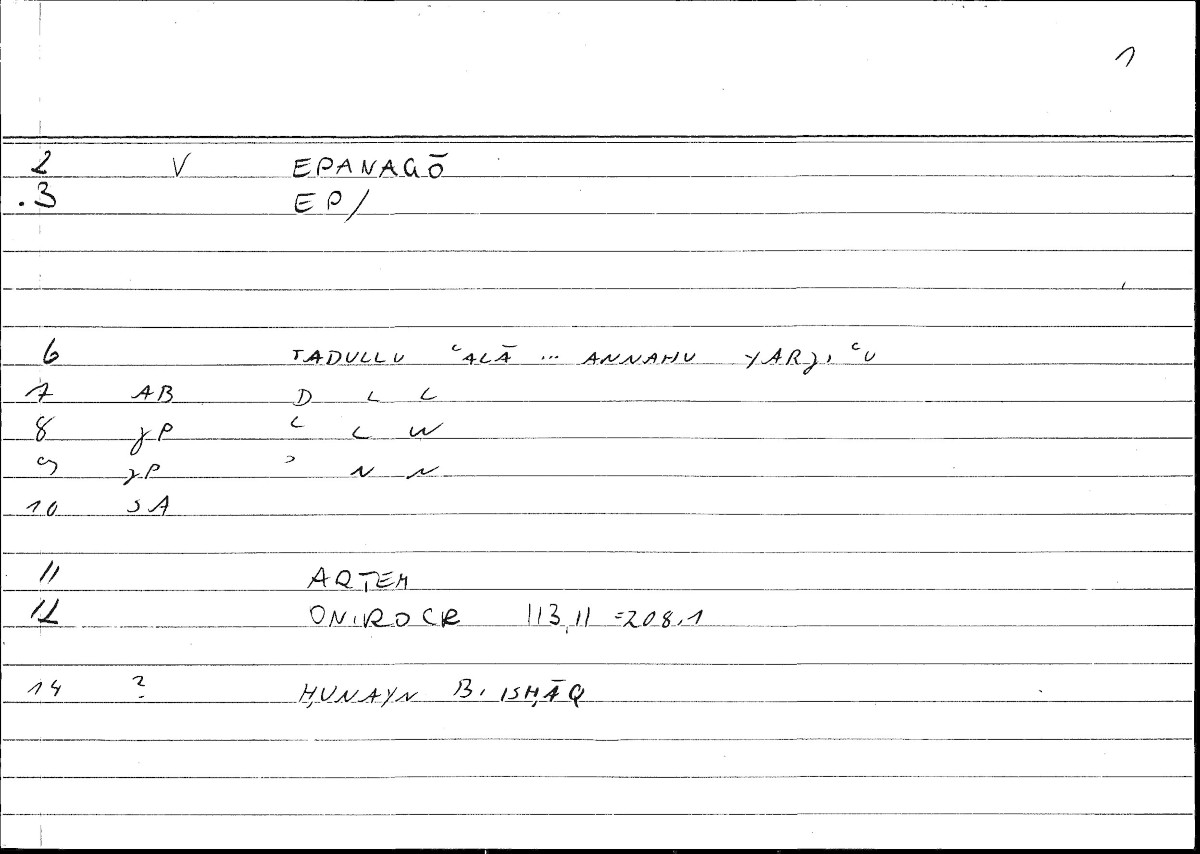 1
2 V EPANAGŌ
.3 EP/
6 TADULLU ʿALĀ ... ANNAHU YARǧ,ʿU
7 AB D L L
8 ȷP ʿ L W
9 ȷP ʾ N N
10 SA
11 ARTEM
12 ONIROCR 113,11 =208,1
14 ? ḤUNAYN B. ISḤĀQ